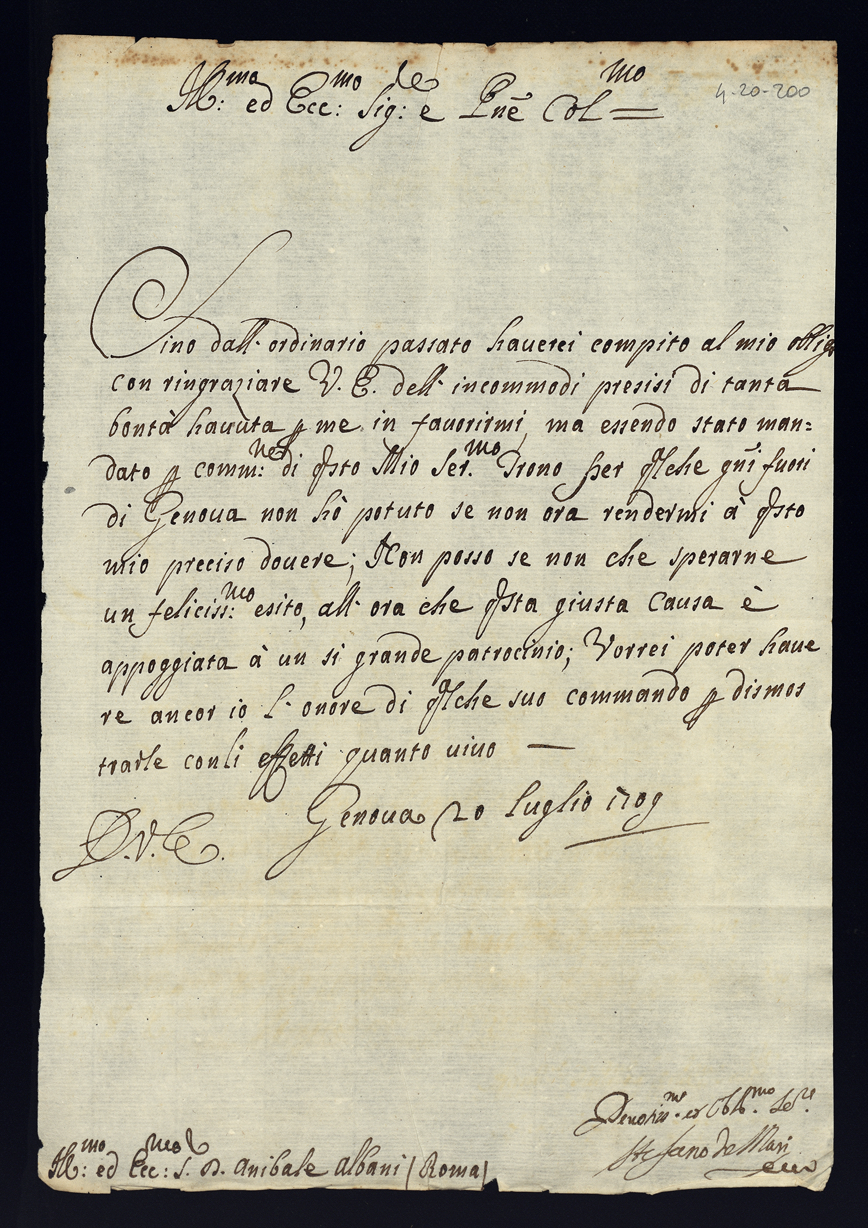 Ill:mo ed Ecc:mo Sig:re e Pnē Col:mo
4-20-200
Sino dall' ordinario passato haverei compito al mio oblig
con ringraziare V. E. dell' incommodi presisi di tanta
bontà havuta ꝑ me in favorirmi, ma essendo stato man=
dato ꝑ comm:ne di qsto Mio Ser:mo Trono per qlche gni fuori
di Genova non hò potuto se non ora rendermi à qsto
mio preciso dovere; Non posso se non che sperarne
un feliciss:mo esito, all' ora che qsta giusta Causa è
appoggiata à un si grande patrocinio; Vorrei poter have
re ancor io l' onore di qlche suo commando ꝑ dismos
trarle con li effetti quanto vivo —
D. V. E. Genova 20 luglio 1709
Devotis:mo ed Obb:mo Se:re
Stefano de Mari
Ill:mo ed Ecc:mo S. D. Anibale Albani (Roma)